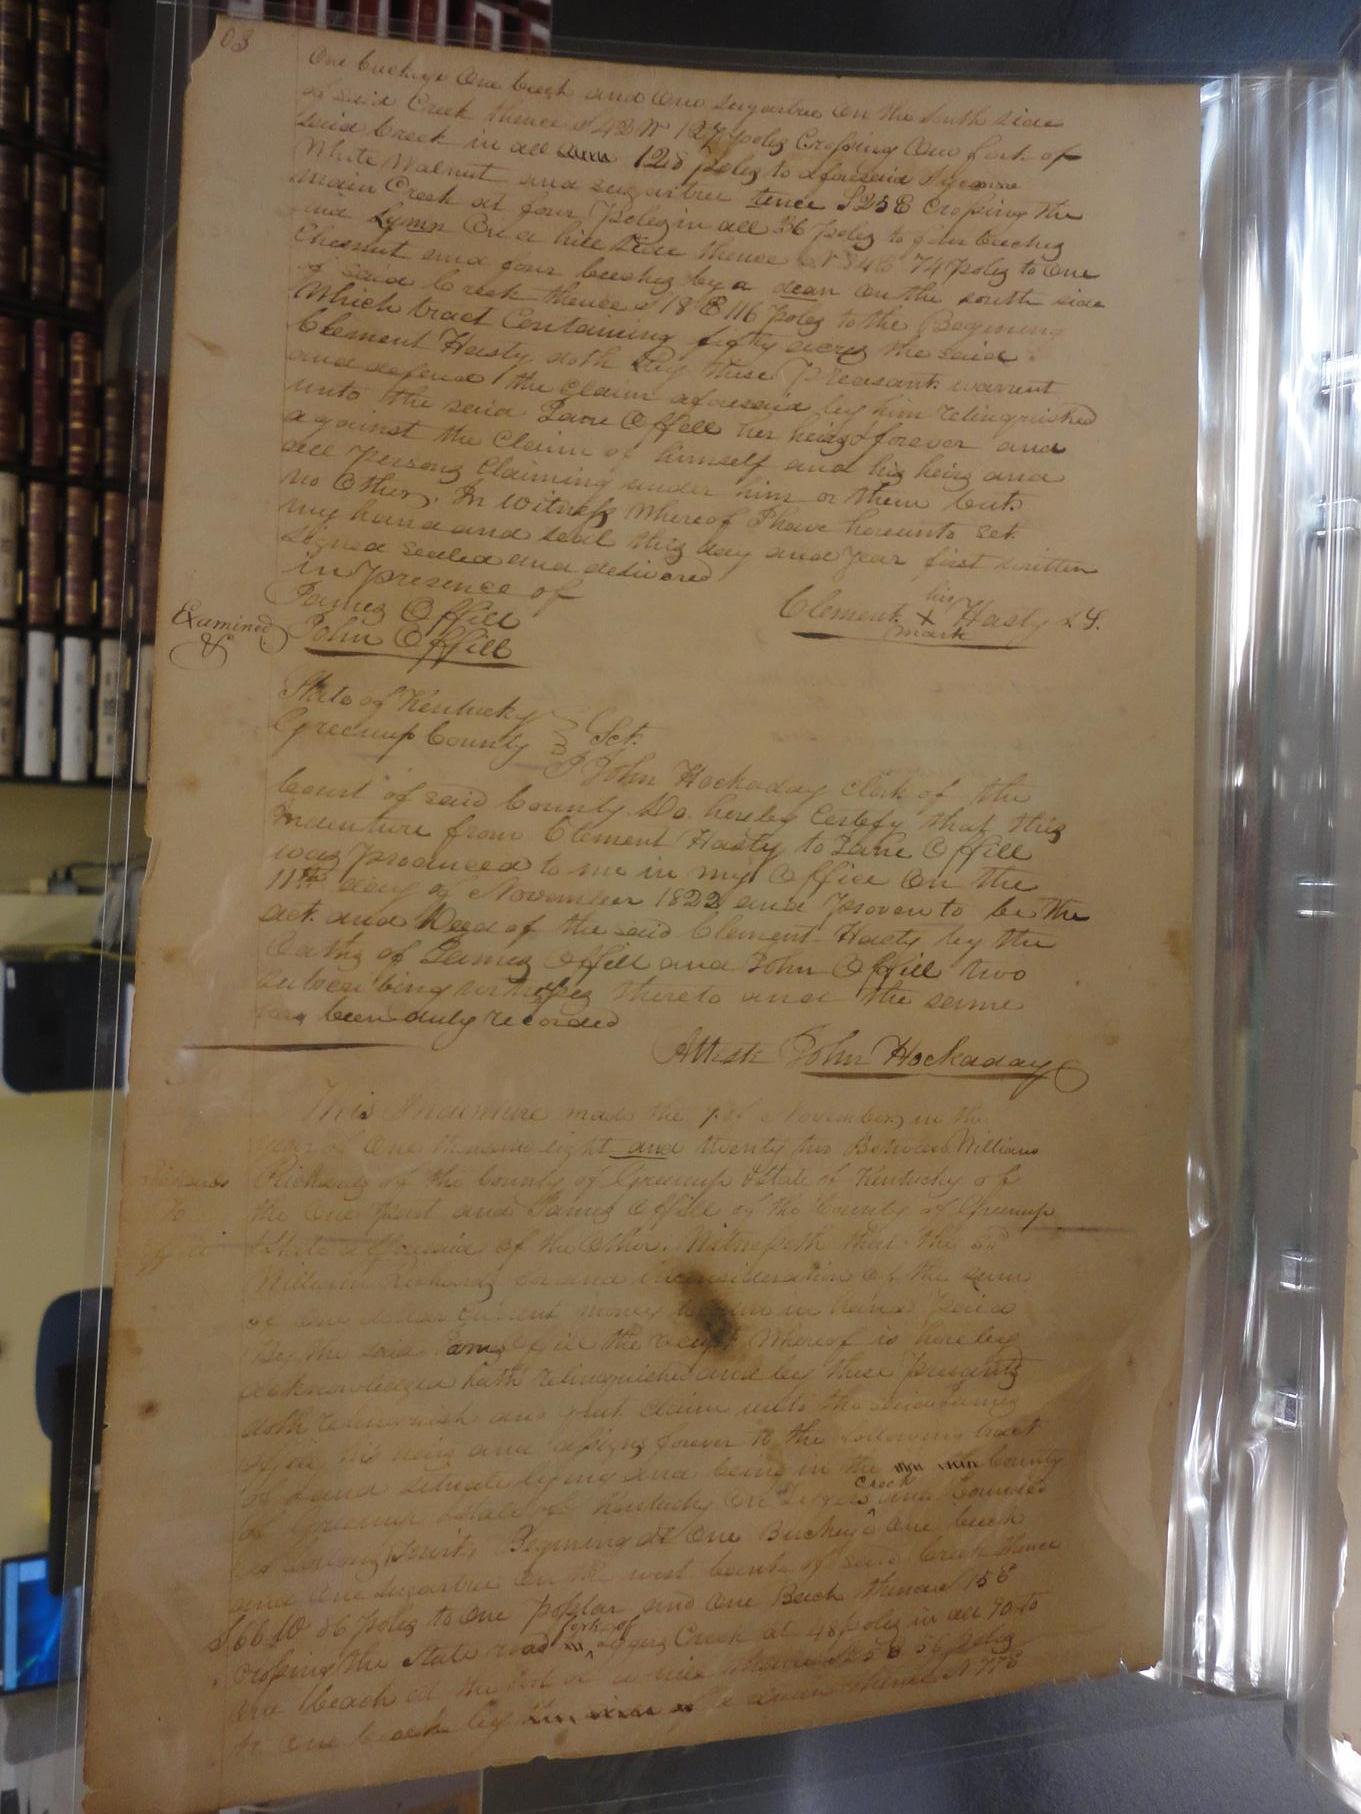 03
One buckeye One beech and One sugartree On the South side
of said Creek thence S 42 W 127 poles Crossing One fork of
said Creek in all 128 poles to aforesaid
White Walnut and sugartree tence S25E Crossing the
main Creek at four Poles in all 36 poles to four beeches
and Lynn On a hill side thence N 84E 74 poles to One
Chesnut and four beeches by a dean On the south side
of said Creek thence S 18 E 116 poles to the Begining
Which tract Containing fifty acres the said
Clement Hasty doth by these Preasants warrent
and defend the Claim aforesaid by him relinquished
unto the said Jane Offill her heirs forever and
against the Claim of himself and his heirs and
all Persons Claiming under him or them but
no Other. In Witness Whereof I have hereunto set
my hand and seal this day and year first written
Signed sealed and delivered
in Presence of
James Offill
John Offill
Examined
&
his
Clement X Hasty LS.
mark
State of Kentucky
Greenup County } Sct.
I John Hockaday Clerk of the
Court of said County Do hereby Certify that this
Indenture from Clement Hasty to Jane Offill
was Produced to me in my Office On the
11th day of November 1822 and Proven to be the
act and Deed of the said Clement Hasty by the
Oaths of James Offill and John Offill two
subscribing witnesses thereto and the same
has been duly recorded
Attest John Hockaday
This Indenture made the 7 of November in the
year of One thousand eight and twenty two Between William
Richards of the County of Greenup State of Kentucky of
Richards
To
the One Part and James Offill of the County of Greenup
State aforesaid Of the Other. Witnesseth that the sd
William Richards for and in consideration Of the sum
of One dollar current money to him in hand paid
By the said James Offill the receipt Whereof is hereby
acknowledged hath relinquished and by these presants
doth relinquish and quit claim unto the said James
Offill his heirs and assigns forever to the following tract
of Land situate lying and being in the County
Of Greenup State of Kentucky On Tygers Creek and bounded
as follows towit, Begining at One Buckeye One beech
and One Sugartree On the west bank of said Creek thence
S66W 86 Poles to One Poplar and One Beech thence N 15 E
Crossing the State road fork of Tygers Creek at 48 poles in all 90 to
One Beach at the foot of a thence 56 poles
to One beach by a drain thence N 77 E